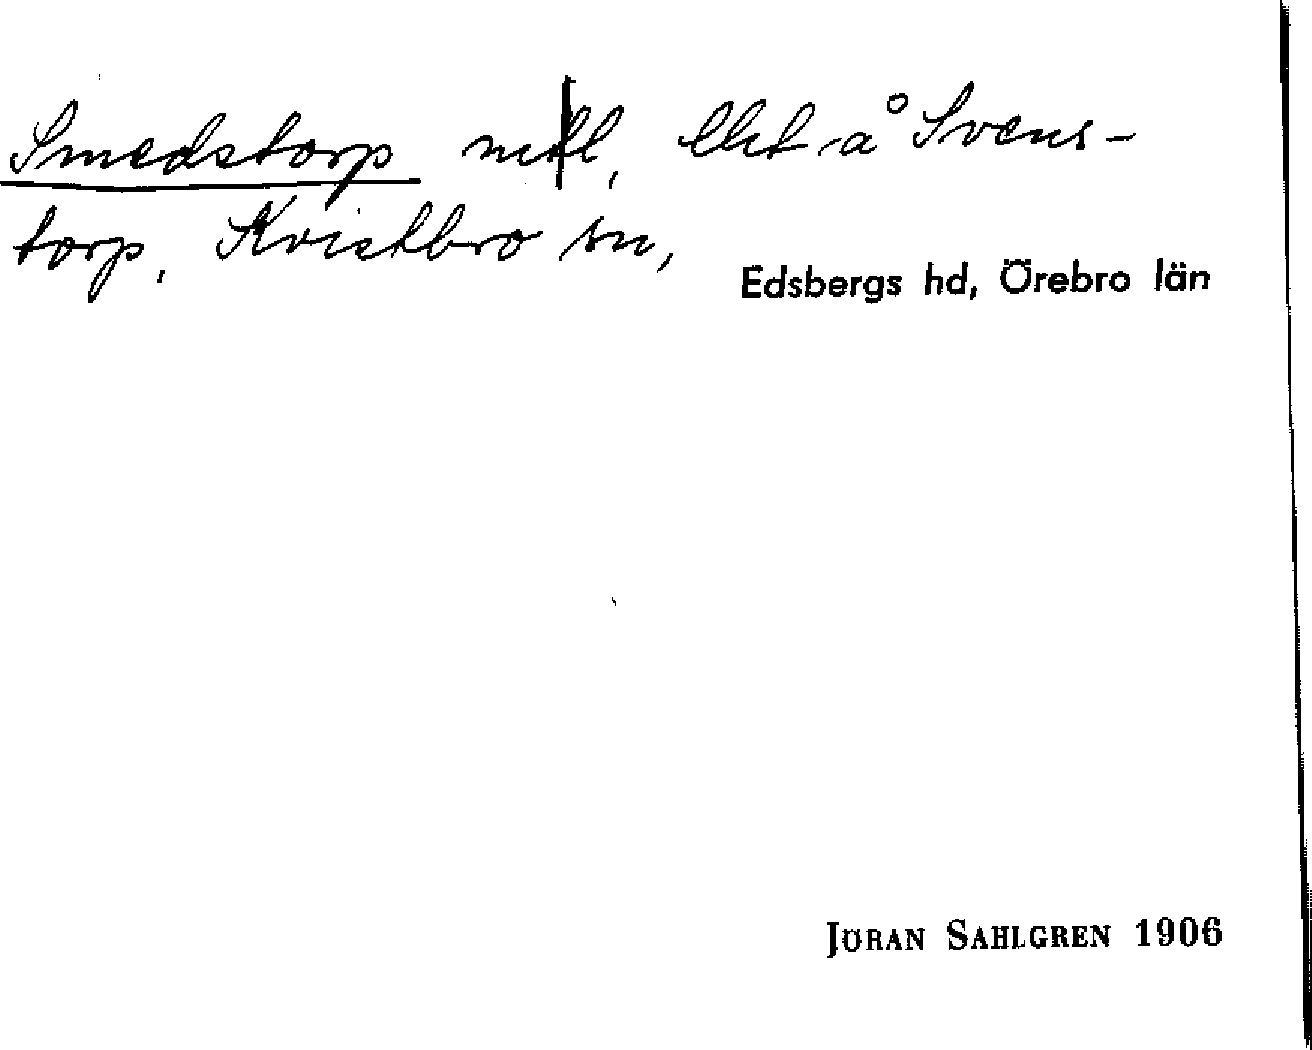 Smedstorp mtl, lht å Svens-
torp, Kvistbro sn,
Edsbergs hd, Örebro län
JÖRAN SAHLGREN 1906